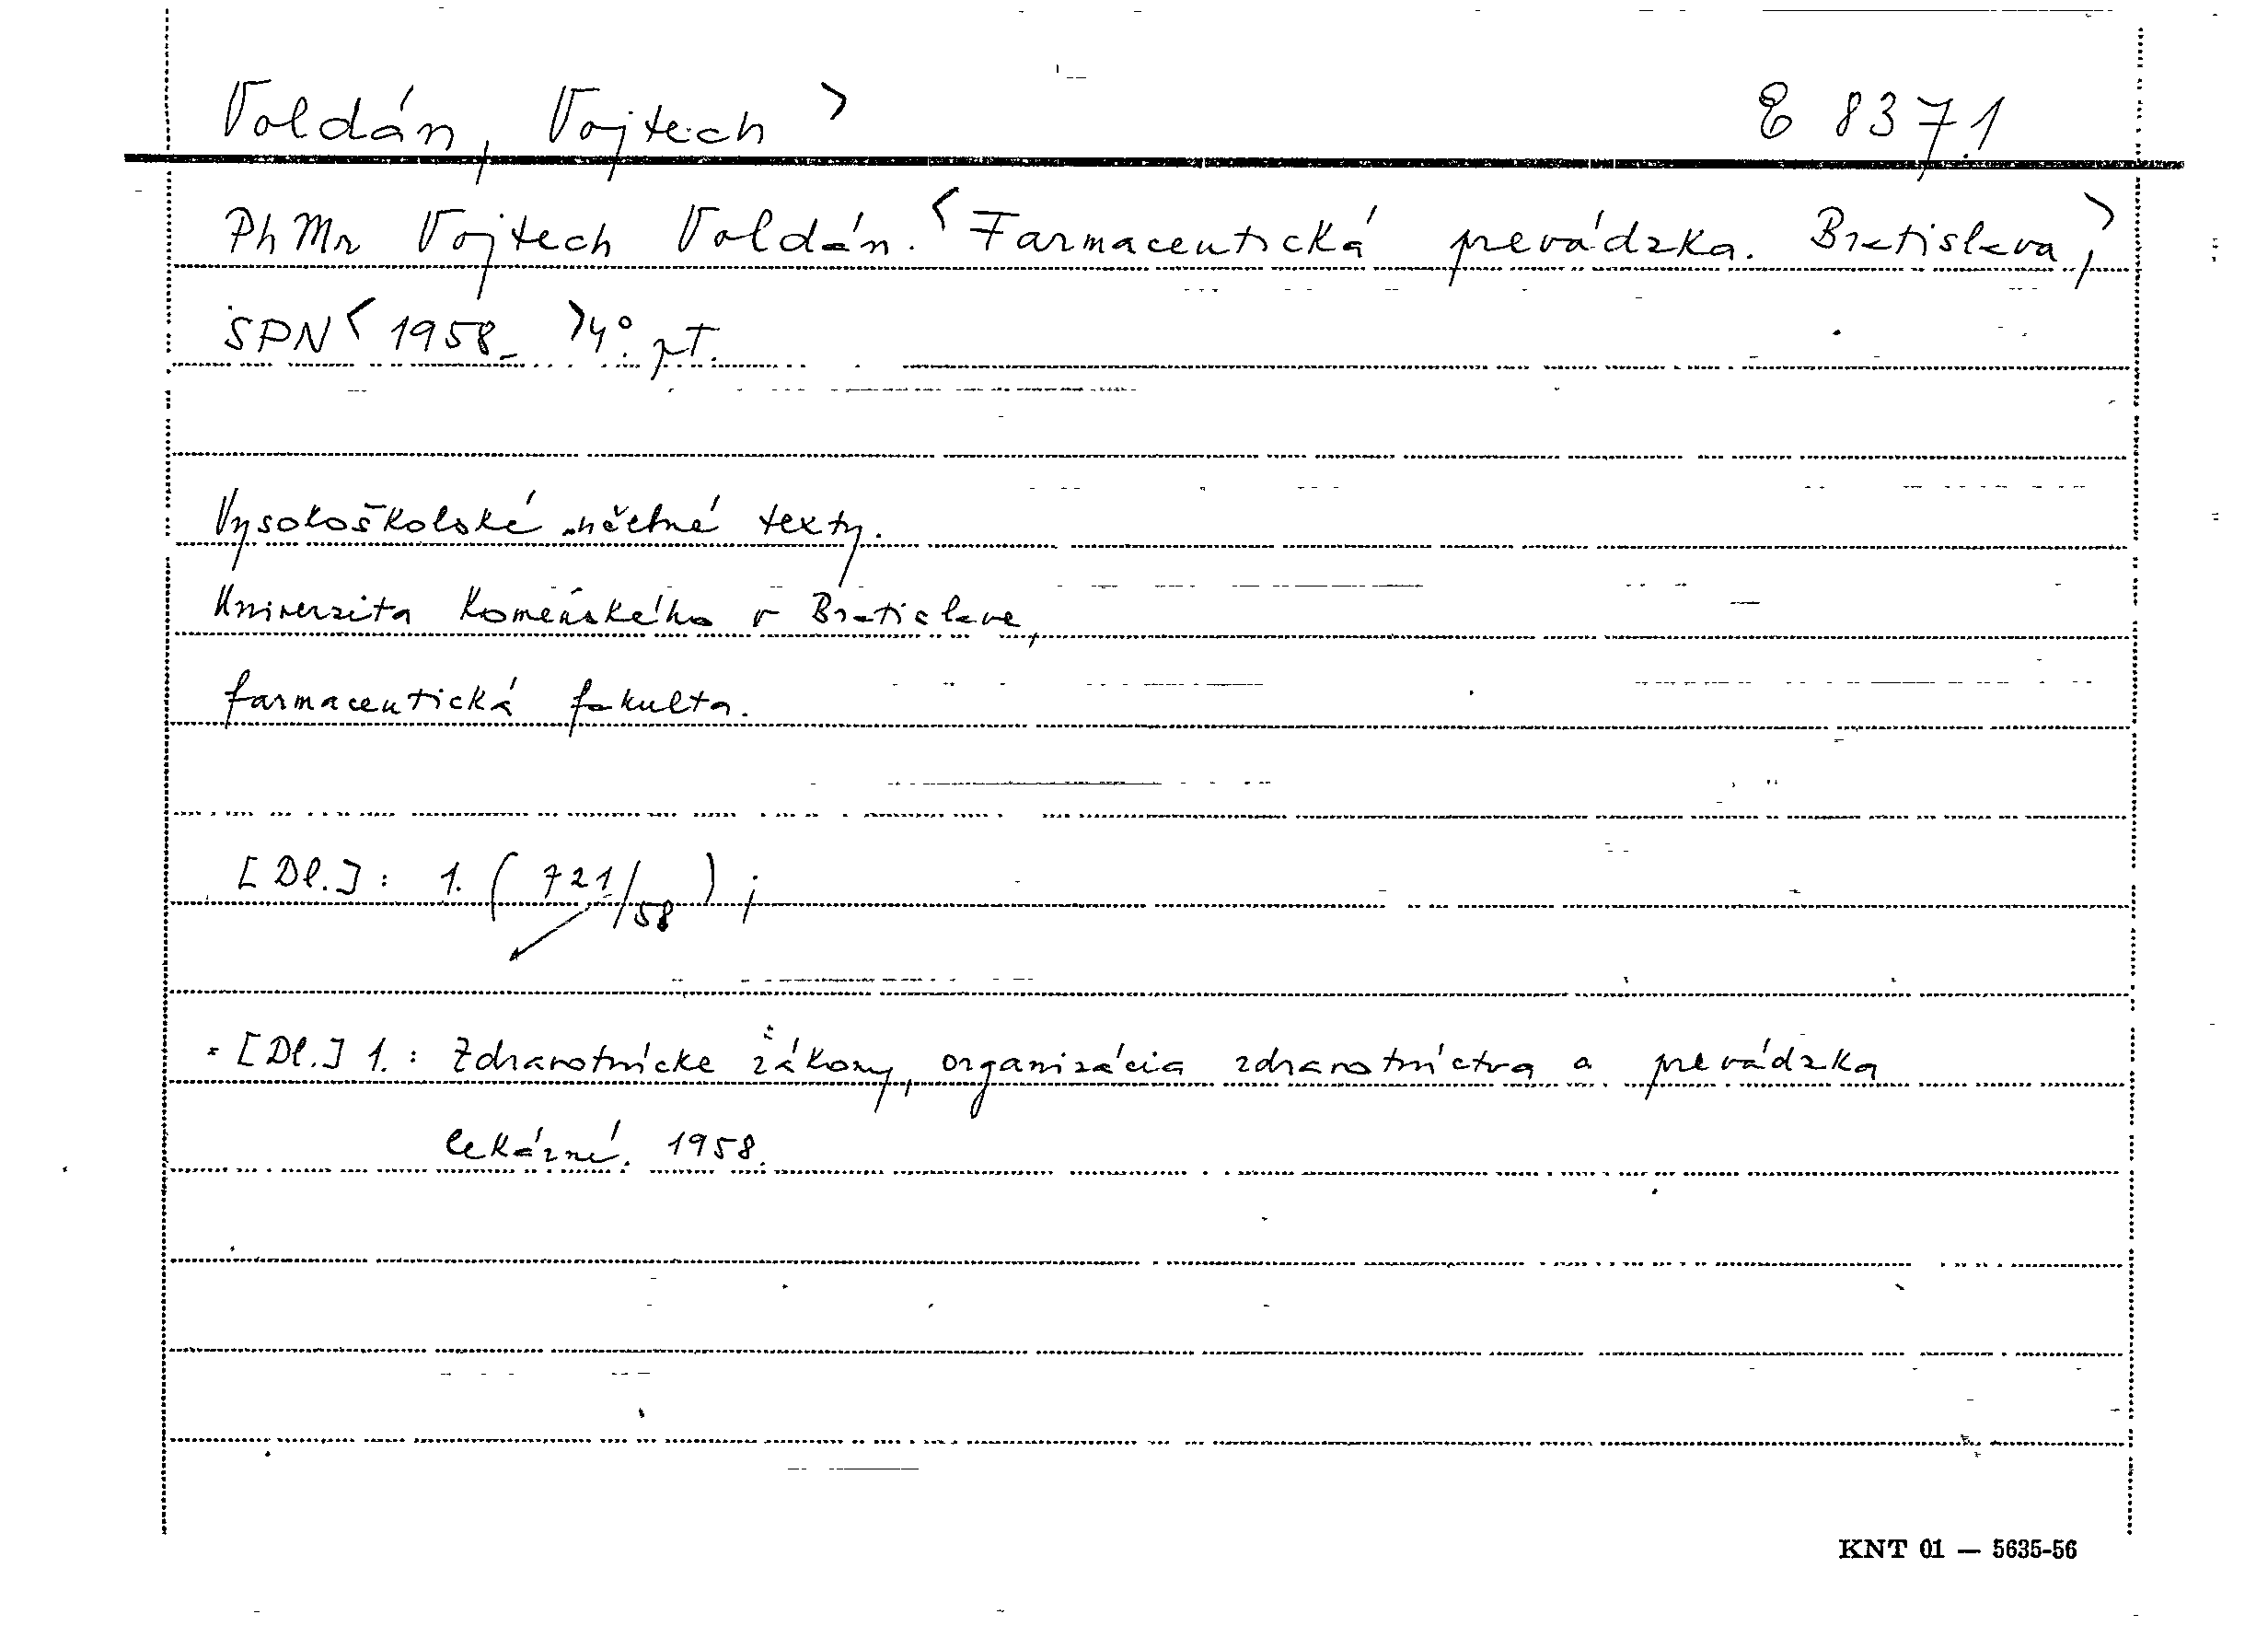 Voldán, Vojtech > E 8371
PhMr Vojtech Voldán. < Farmaceutická prevádzka. Bratislava, >
SPN < 1958- > 4°. pT.
Vysokoškolské učebné texty.
Univerzita Komenského v Bratislave,
farmaceutická fakulta.
[Dl.]: 1. ( 721/58 ) ;
[Dl.] 1.: Zdravotnícke zákony, organizácia zdravotníctva a prevádzka
lekární. 1958.
KNT 01 — 5635-56